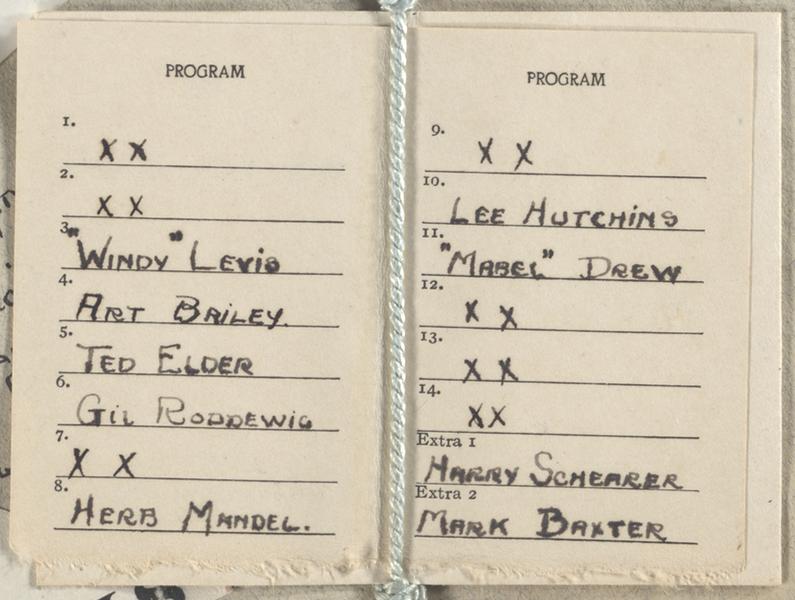 PROGRAM
1.
X X
2.
X X
3.
"WINDY" LEVIS
4.
ART BAILEY.
5.
TED ELDER
6.
GIL RODDEWIG
7.
X X
8.
HERB MANDEL.
PROGRAM
9.
X X
10.
LEE HUTCHINS
11.
"MABEL" DREW
12.
X X
13.
X X
14.
XX
Extra 1
HARRY SCHEARER
Extra 2
MARK BAXTER